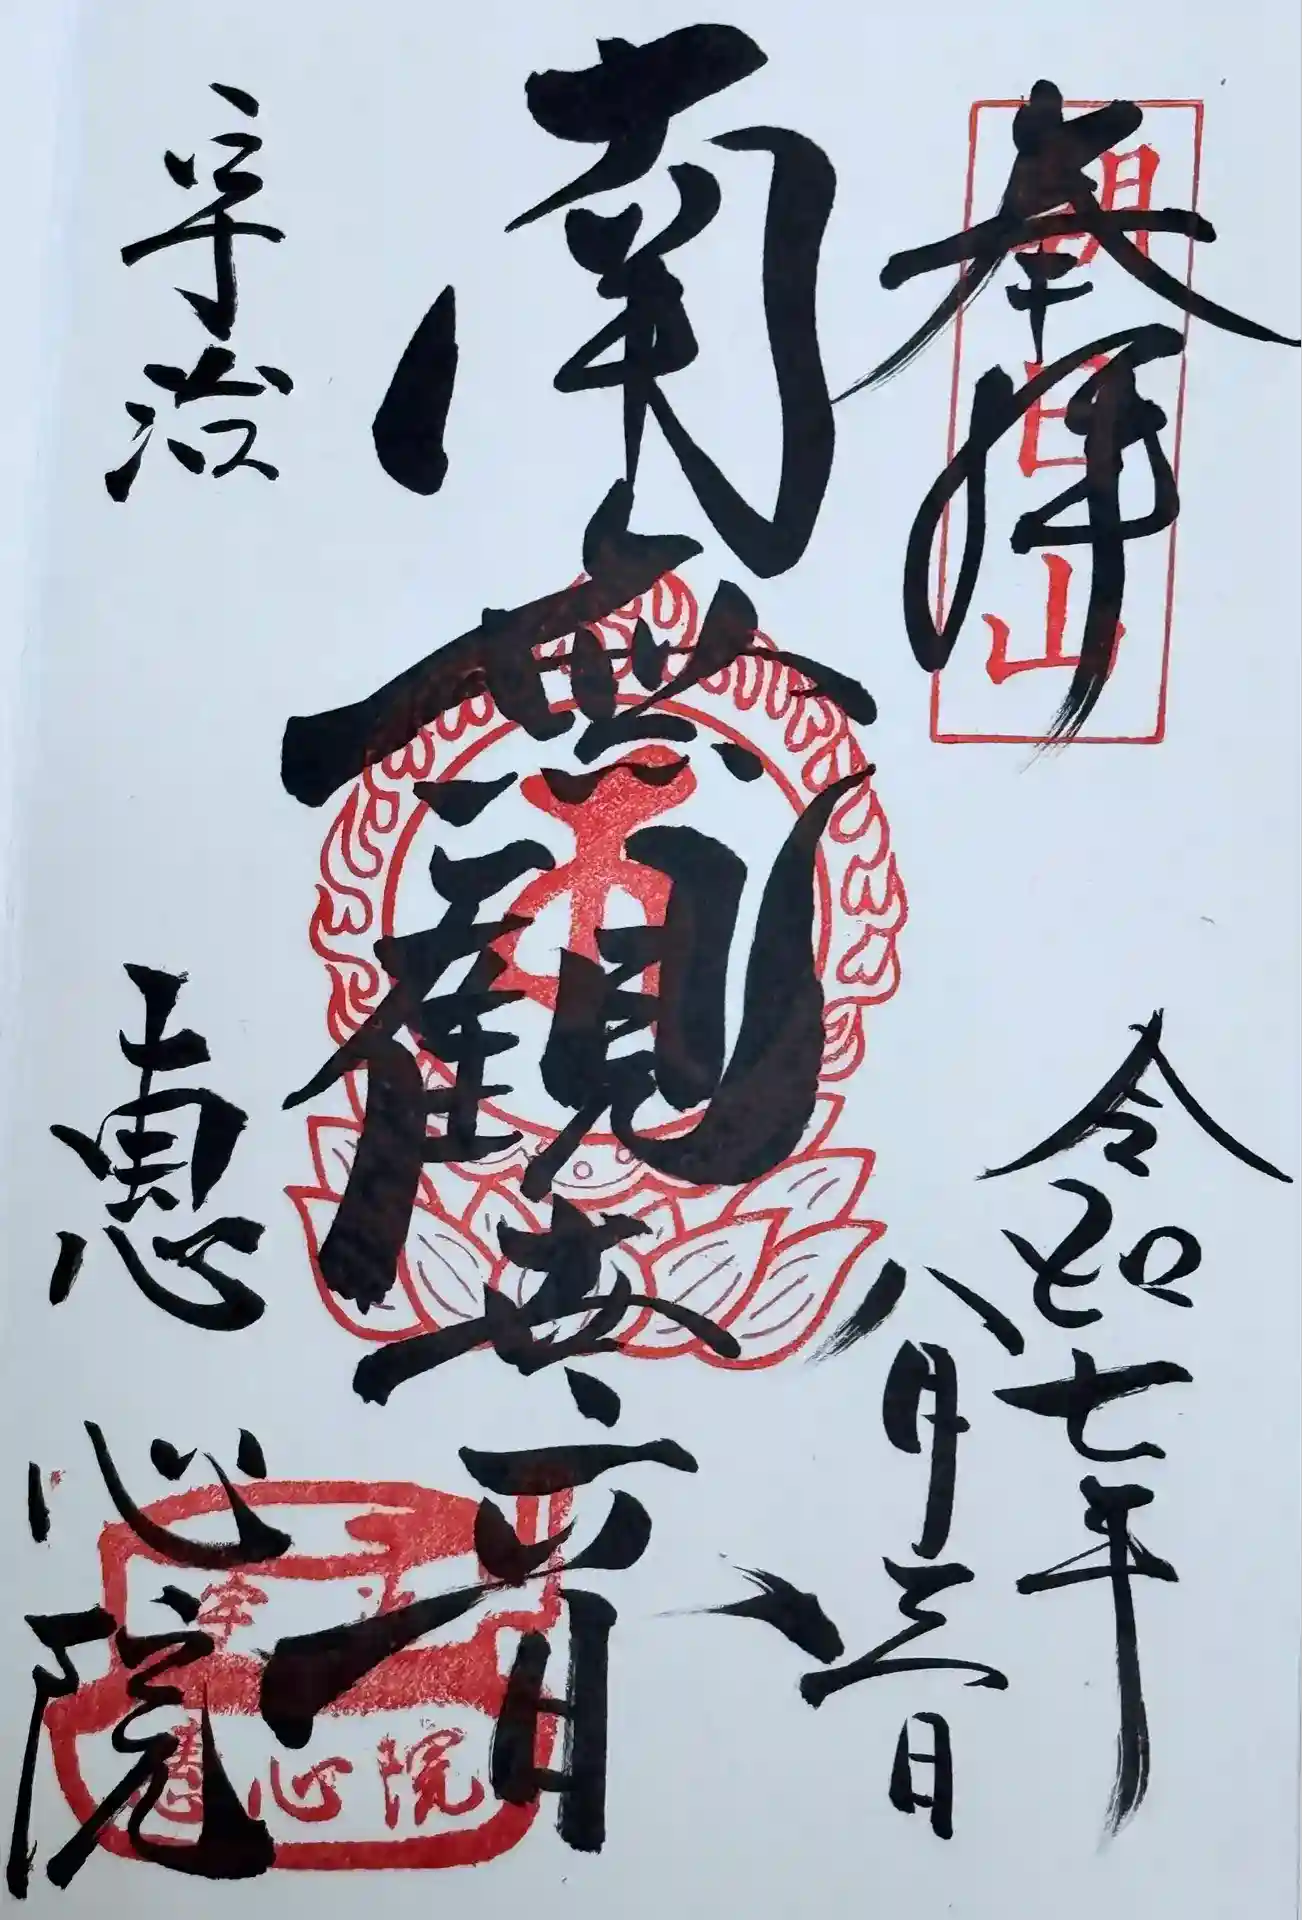 奉拝
朝日山
令和七年
八月三日
南無観世音
宇治
惠心院
宇治
惠心院